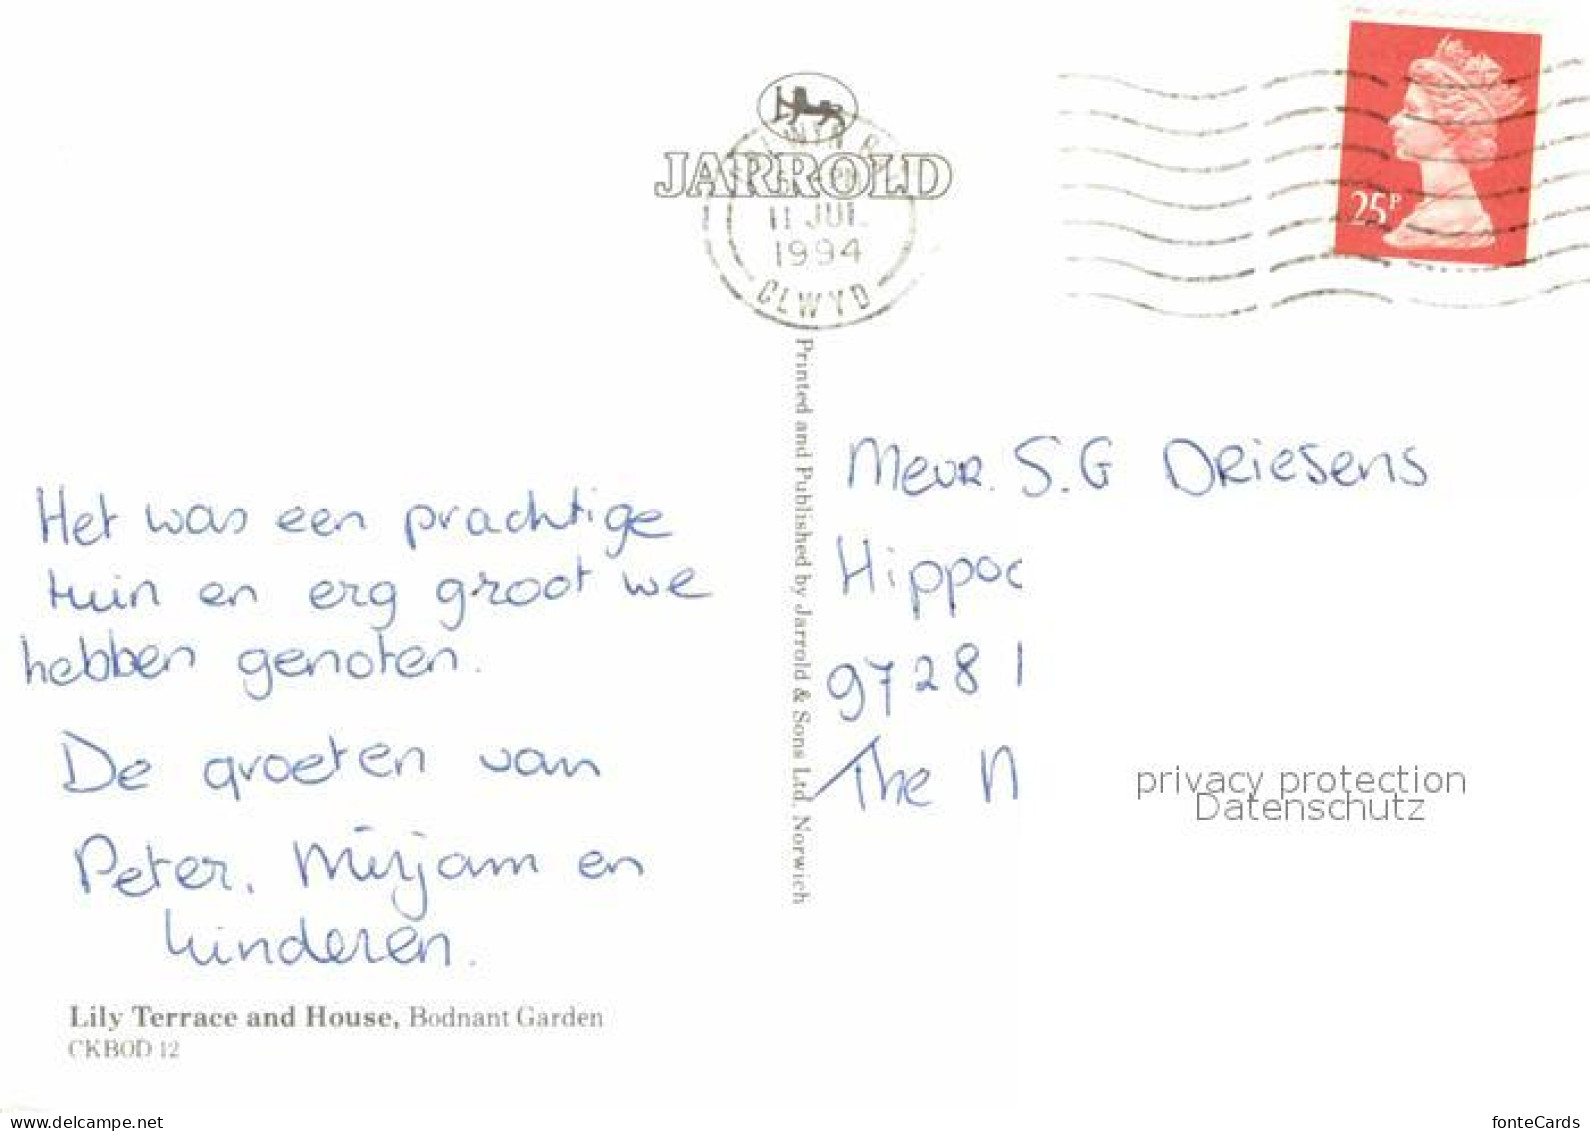 JARROLD
11 JUL
1994
CLWYD
25P
Printed and Published by Jarrold & Sons Ltd, Norwich
Het was een prachtige
tuin en erg groot we
hebben genoten.
De groeten van
Peter, Mirjam en
kinderen.
Lily Terrace and House, Bodnant Garden
CKBOD 12
Mevr. S.G Driesens
Hippoc
9728 1
The N
privacy protection
Datenschutz
my.delcampe.net
fonteCards